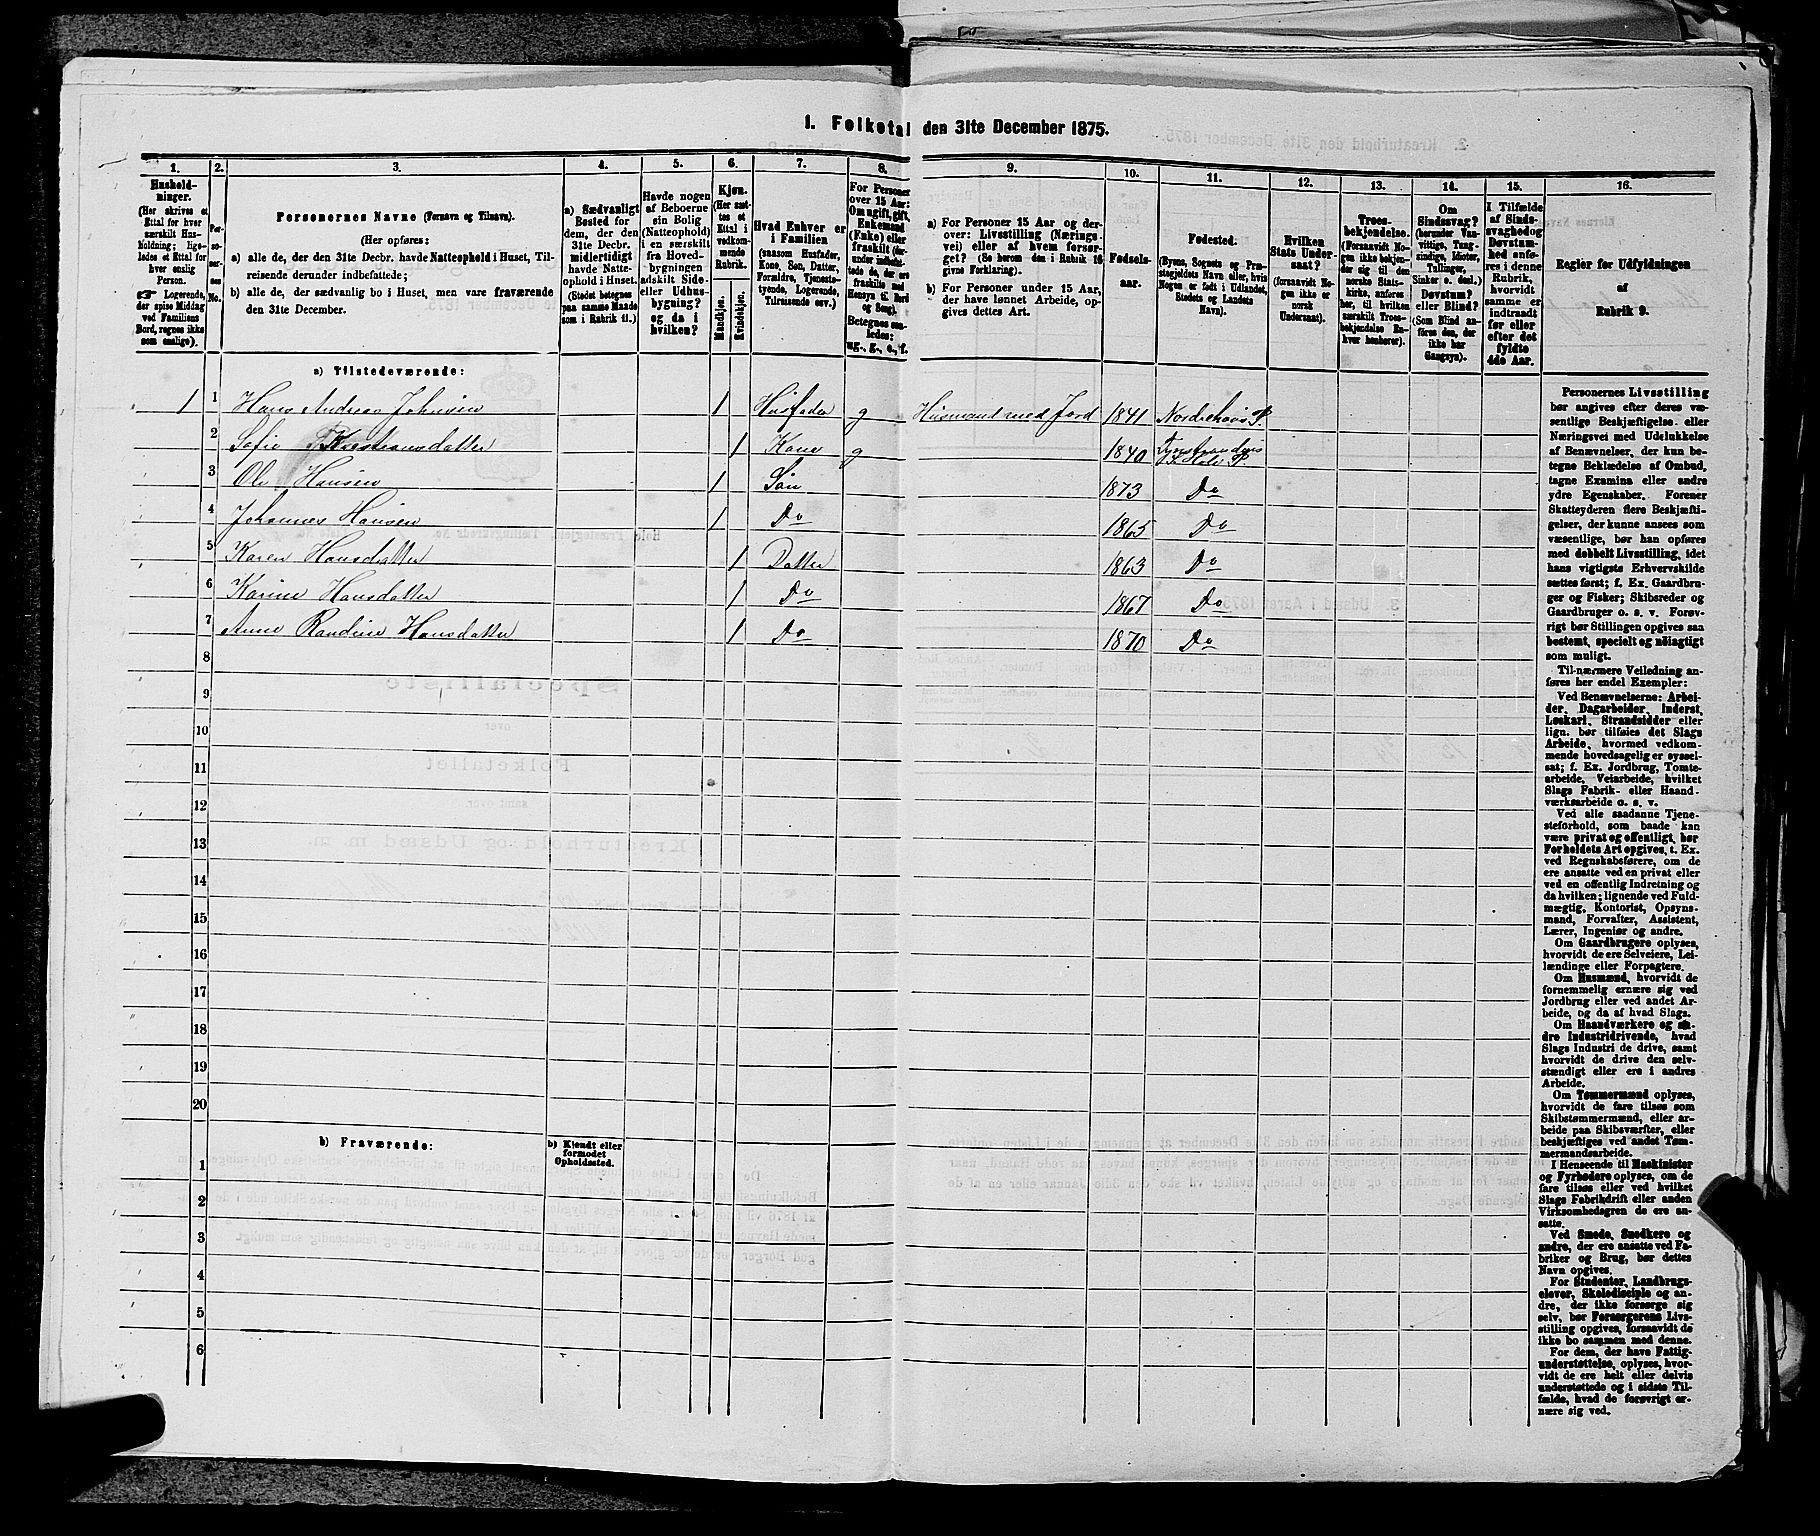 1. Folketal den 31te December 1875.
1. 2. 3. 4. 5. 6. 7. 8. 9. 10. 11. 12. 13. 14. 15. 16.
Hushold-
ninger.
(Her skrives et
Ettal for hver
særskilt Hus-
holdning; lige-
ledes et Ettal for
hver enslig
Person.
Logerende,
der spise Middag
ved Familiens
Bord, regnes ikke
som enslige).
Per-
so-
ner-
nes
No.
Personernes Navne (Fornavn og Tilnavn).
(Her opføres:
a) alle de, der den 31te Decbr. havde Natteophold i Huset, Til-
reisende derunder indbefattede;
b) alle de, der sædvanlig bo i Huset, men vare fraværende
den 31te December.
a) Sædvanligt
Bosted for
dem, der den
31te Decbr.
midlertidigt
havde Natte-
ophold i Huset.
(Stedet betegnes
paa samme Maade
som i Rubrik 11.)
Havde nogen
af Beboerne
sin Bolig
(Natteophold)
i en særskilt
fra Hoved-
bygningen
adskilt Side-
eller Udhus-
bygning?
og da i
hvilken?
Kjøn.
(Her sæt-
tes et
Ettal i
vedkom-
mende
Rubrik.
Mandkjøn.
Kvindekjøn.
Hvad Enhver er
i Familien
(saasom Husfader,
Kone, Søn, Datter,
Forældre, Tjeneste-
tyende, Logerende,
Tilreisende osv.)
For Personer
over 15 Aar:
Om ugift, gift,
Enkemand
(Enke) eller
fraskilt (der-
under indbefat-
tede de, der ere
fraskilte med
Hensyn til Bord
og Seng).
Betegnes saa-
ledes:
ug., g., e., f.
a) For Personer 15 Aar og der-
over: Livsstilling (Nærings-
vei) eller af hvem forsør-
get? (Se herom den i Rubrik 16
givne Forklaring).
b) For Personer under 15 Aar,
der have lønnet Arbeide, op-
gives dettes Art.
Fødsels-
aar.
Fødested.
(Byens, Sognets og Præ-
stegjeldets Navn eller, hvis
Nogen er født i Udlandet,
Stedets og Landets
Navn).
Hvilken
Stats Under-
saat?
(forsaavidt No-
gen ikke er
norsk
Undersaat).
Troes-
bekjendelse.
(Forsaavidt No-
gen ikke bekjen-
der sig til den
norske Stats-
kirke, anføres
her, til hvilken
særskilt Troes-
bekjendelse En-
hver henhører).
Om
Sindssvag?
(herunder Van-
vittige, Tung-
sindige, Idioter,
Tullinger,
Sinker o. desl.)
Døvstum?
eller Blind?
(Som Blind an-
føres den, der
ikke har
Gangsyn).
I Tilfælde
af Sinds-
svaghed og
Døvstum-
hed anfø-
res i denne
Rubrik,
hvorvidt
samme er
indtraadt
før eller
efter det
fyldte
4de Aar.
Regler for Udfyldningen
af
Rubrik 9.
a) Tilstedeværende:
1 1 Hans Andreas Johnsen 1 Husfader g Husmand med Jord 1841 Norderhovs P.
2 Sofie Kristiansdatter 1 Kone g 1840 Tyristrandens S. Hole P.
3 Ole Hansen 1 Søn 1873 Do
4 Johannes Hansen 1 Do 1865 Do
5 Karen Hansdatter 1 Datter 1863 Do
6 Karine Hansdatter 1 Do 1867 Do
7 Anne Randine Hansdatter 1 Do 1870 Do
8
9
10
11
12
13
14
15
16
17
18
19
20
b) Fraværende:
b) Kjendt eller
formodet
Opholdssted.
1
2
3
4
5
6
Personernes Livsstilling
bør angives efter deres væ-
sentlige Beskjæftigelse eller
Næringsvei med Udelukkelse
af Benævnelser, der kun be-
tegne Beklædelse af Ombud,
tagne Examina eller andre
ydre Egenskaber. Forener
Skatteyderen flere Beskjæfti-
gelser, der kunne ansees som
væsentlige, bør han opføres
med dobbelt Livsstilling, idet
hans vigtigste Erhvervskilde
sættes først; f. Ex. Gaardbru-
ger og Fisker; Skibsreder og
Gaardbruger o. s. v. Forøv-
rigt bør Stillingen opgives saa
bestemt, specielt og nøiagtigt
som muligt.
Til nærmere Veiledning an-
føres her endel Exempler:
Ved Benævnelserne: Arbei-
der, Dagarbeider, Inderst,
Løskarl, Strandsidder eller
lign. bør tilføies det Slags
Arbeide, hvormed vedkom-
mende hovedsagelig er syssel-
sat; f. Ex. Jordbrug, Tomte-
arbeide, Veiarbeide, hvilket
Slags Fabrik- eller Haand-
værksarbeide o. s. v.
Ved alle saadanne Tjene-
steforhold, som baade kan
være privat og offentligt, bør
Forholdets Art opgives, t. Ex.
ved Regnskabsførere, om de
ere ansatte ved en privat eller
ved en offentlig Indretning og
da hvilken; lignende ved Fuld-
mægtig, Kontorist, Opsyns-
mand, Forvalter, Assistent,
Lærer, Ingeniør og andre.
Om Gaardbrugere oplyses,
hvorvidt de ere Selveiere, Lei-
lændinge eller Forpagtere.
Om Husmænd, hvorvidt de
fornemmelig ernære sig ved
Jordbrug eller ved andet Ar-
beide, og da af hvad Slags.
Om Haandværkere og an-
dre Industridrivende, hvad
Slags Industri de drive, samt
hvorvidt de drive den selv-
stændigt eller ere i andres
Arbeide.
Om Tømmermænd oplyses,
hvorvidt de fare tilsøs som
Skibstømmermænd, eller ar-
beide paa Skibsværfter, eller
beskjæftiges ved andet Tøm-
mermandsarbeide.
I Henseende til Maskinister
og Fyrbødere oplyses, om de
fare tilsøs eller ved hvilket
Slags Fabrikdrift eller anden
Virksomhedsgren de ere an-
satte.
Ved Smede, Snedkere og
andre, der ere ansatte ved Fa-
briker og Brug, bør dettes
Navn opgives.
For Studenter, Landbrugs-
elever, Skoledisciple og an-
dre, der ikke forsørge sig
selv, bør Forsørgerens Livs-
stilling opgives, forsaavidt de
ikke bo sammen med denne.
For dem, der have Fattig-
understøttelse, oplyses, hvor-
vidt de ere helt eller delvis
understøttede og i sidste Til-
fælde, hvad de forøvrigt er-
nære sig ved.